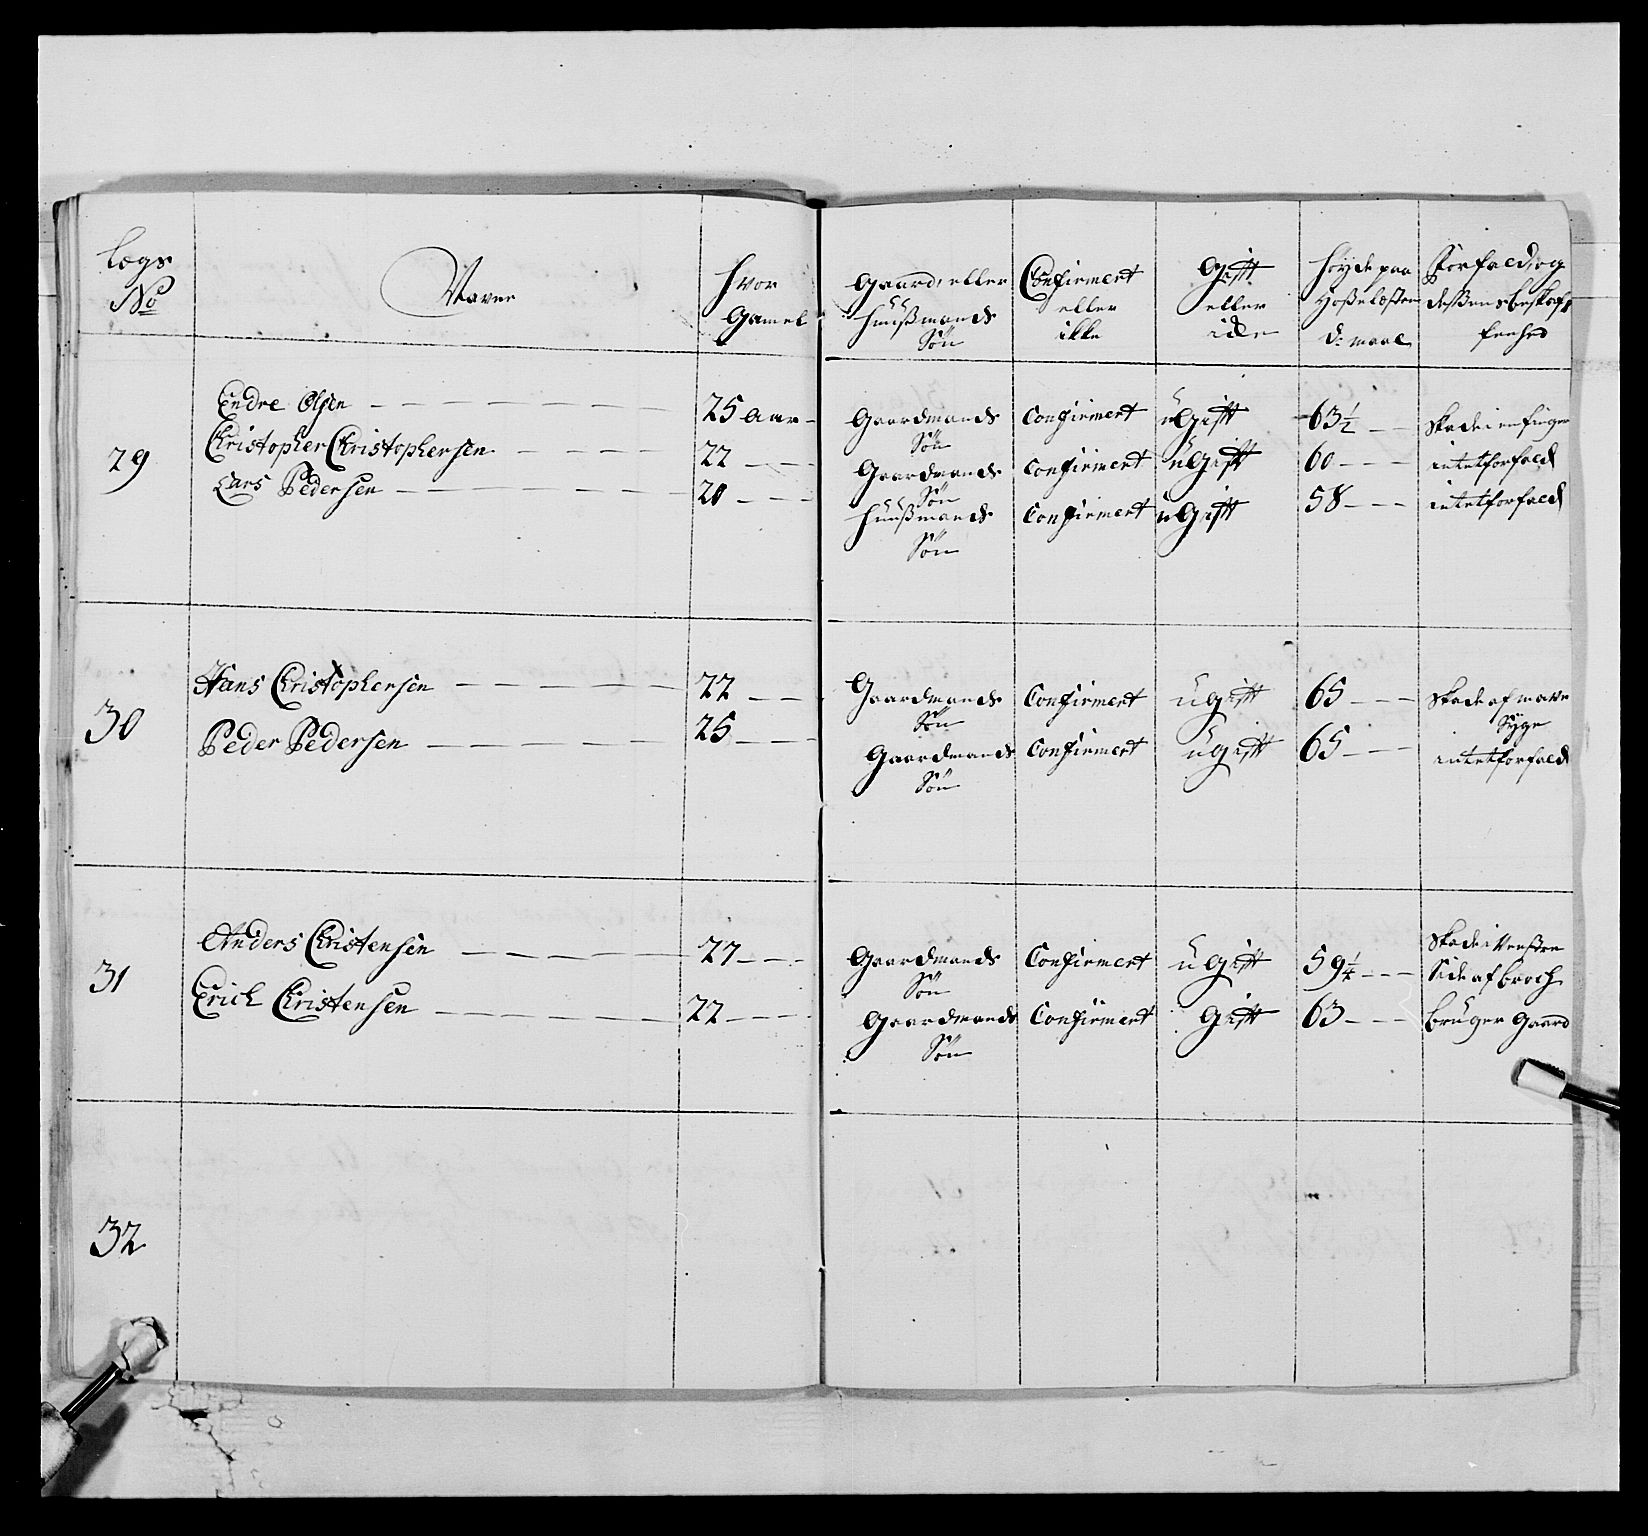 Legs No Navne Hvor Gamel Gaard, eller Huusmands Søn Confirmert eller ikke Gift eller icke Høyde paa Hosseløsten d: maal Forfald, og dessens beskaffenhed
29 Endre Olsen 25 aar Gaardmands Søn Confirmert ugift 63½ skade i en finger
Christopher Christophersen 22 Gaardmands Søn Confirmert ugift 60 intet forfald
Lars Pedersen 20 Huusmands Søn Confirmert ugift 58 intet forfald
30 Hans Christophersen 22 Gaardmands Søn Confirmert ugift 65 skade af mave Syge
Peder Pedersen 25 Gaardmands Søn Confirmert ugift 65 intet forfald
31 Anders Christensen 27 Gaardmands Søn Confirmert ugift 59¼ skade i venstre Side af broch
Erich Christensen 22 Gaardmands Søn Confirmert Gift 63 bruger Gaard
32